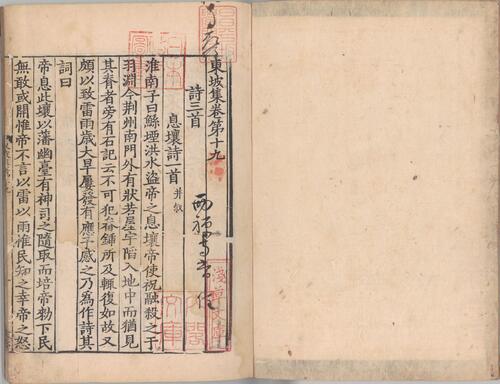 東坡集卷第十九
詩三首
息壤詩一首 并敘
淮南子曰鯀堙洪水盜帝之息壤帝使祝融殺之于
羽淵今荆州南門外有狀若屋宇陷入地中而猶見
其脊者旁有石記云不可犯畚鍤所及輒復如故又
頗以致雷雨歲大旱屢發有應予感之乃爲作詩其
詞曰
帝息此壤以藩幽臺有神司之隨取而培帝勑下民
無敢或開惟帝不言以雷以雨惟民知之幸帝之怒
淺草文庫